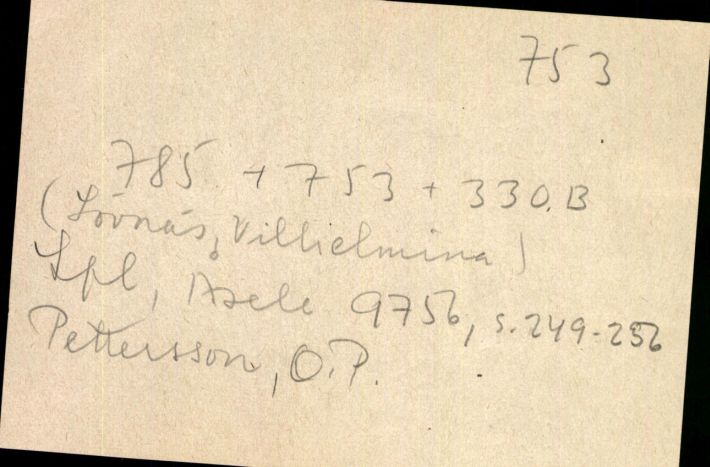 753
785 + 753 + 330.B
(Lövnäs, Vilhelmina)
Lpl, Åsele 9756, s. 249-256
Pettersson, O.P.